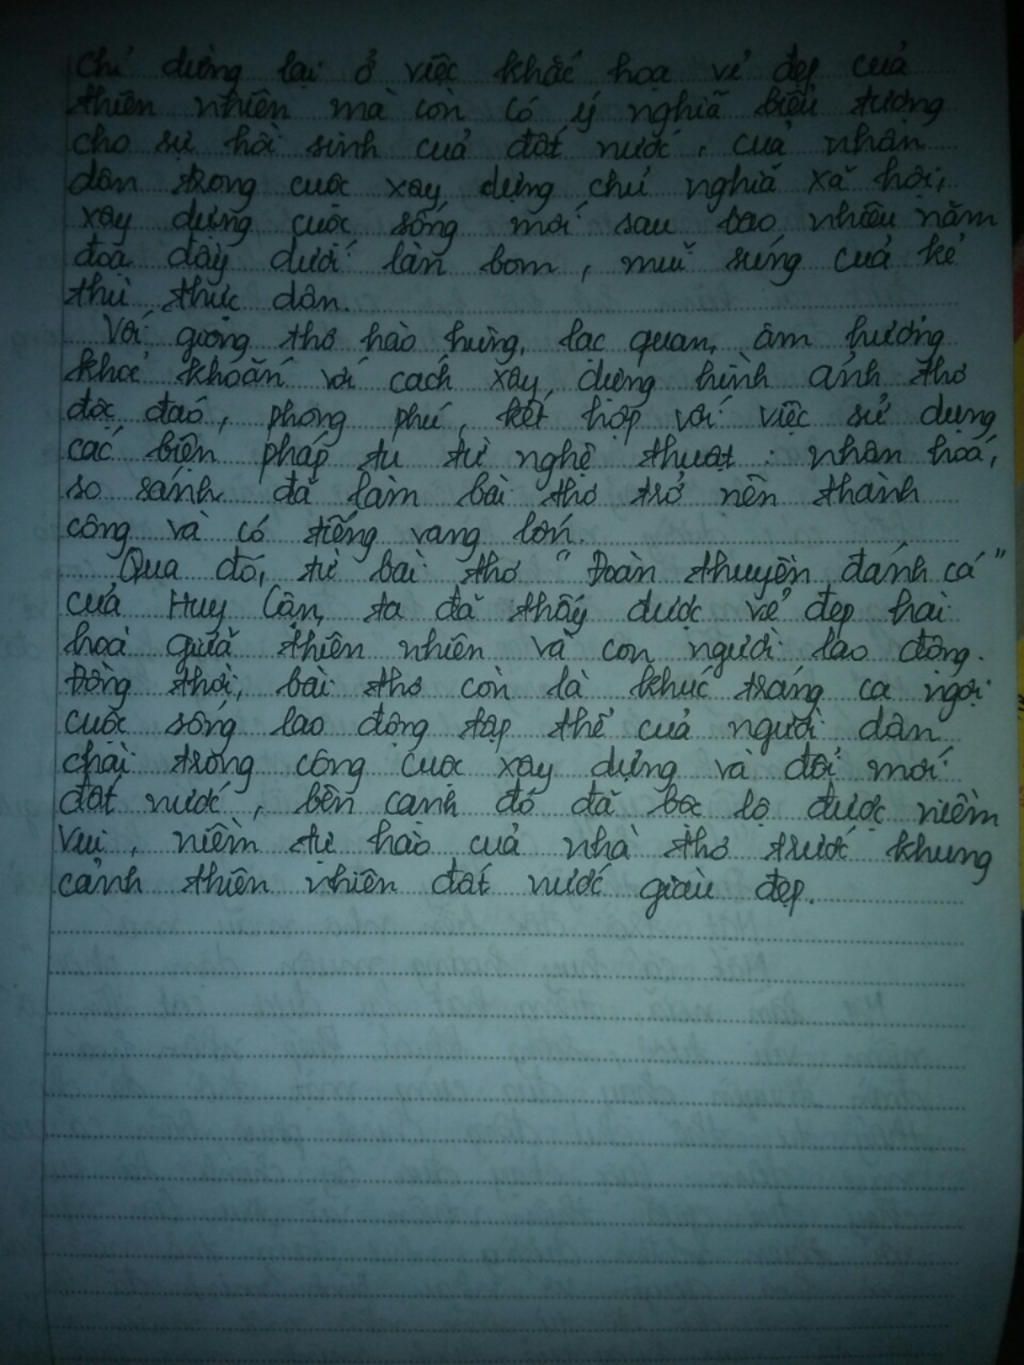 chỉ dừng lại ở việc khắc hoạ vẻ đẹp của
thiên nhiên mà còn có ý nghĩa biểu tượng
cho sự hồi sinh của đất nước, của nhân
dân trong cuộc xây dựng chủ nghĩa xã hội,
xây dựng cuộc sống mới sau bao nhiêu năm
đoạ đày dưới làn bom, mũi súng của kẻ
thù thực dân.
Với giọng thơ hào hùng, lạc quan, âm hưởng
khoẻ khoắn với cách xây dựng hình ảnh thơ
độc đáo, phong phú, kết hợp với việc sử dụng
các biện pháp tu từ nghệ thuật: nhân hoá,
so sánh đã làm bài thơ trở nên thành
công và có tiếng vang lớn.
Qua đó, từ bài thơ "Đoàn thuyền đánh cá"
của Huy Cận, ta đã thấy được vẻ đẹp hài
hoà giữa thiên nhiên và con người lao động.
Đồng thời, bài thơ còn là khúc tráng ca ngợi
cuộc sống lao động tập thể của người dân
chài trong công cuộc xây dựng và đổi mới
đất nước, bên cạnh đó đã bộc lộ được niềm
vui, niềm tự hào của nhà thơ trước khung
cảnh thiên nhiên đất nước giàu đẹp.